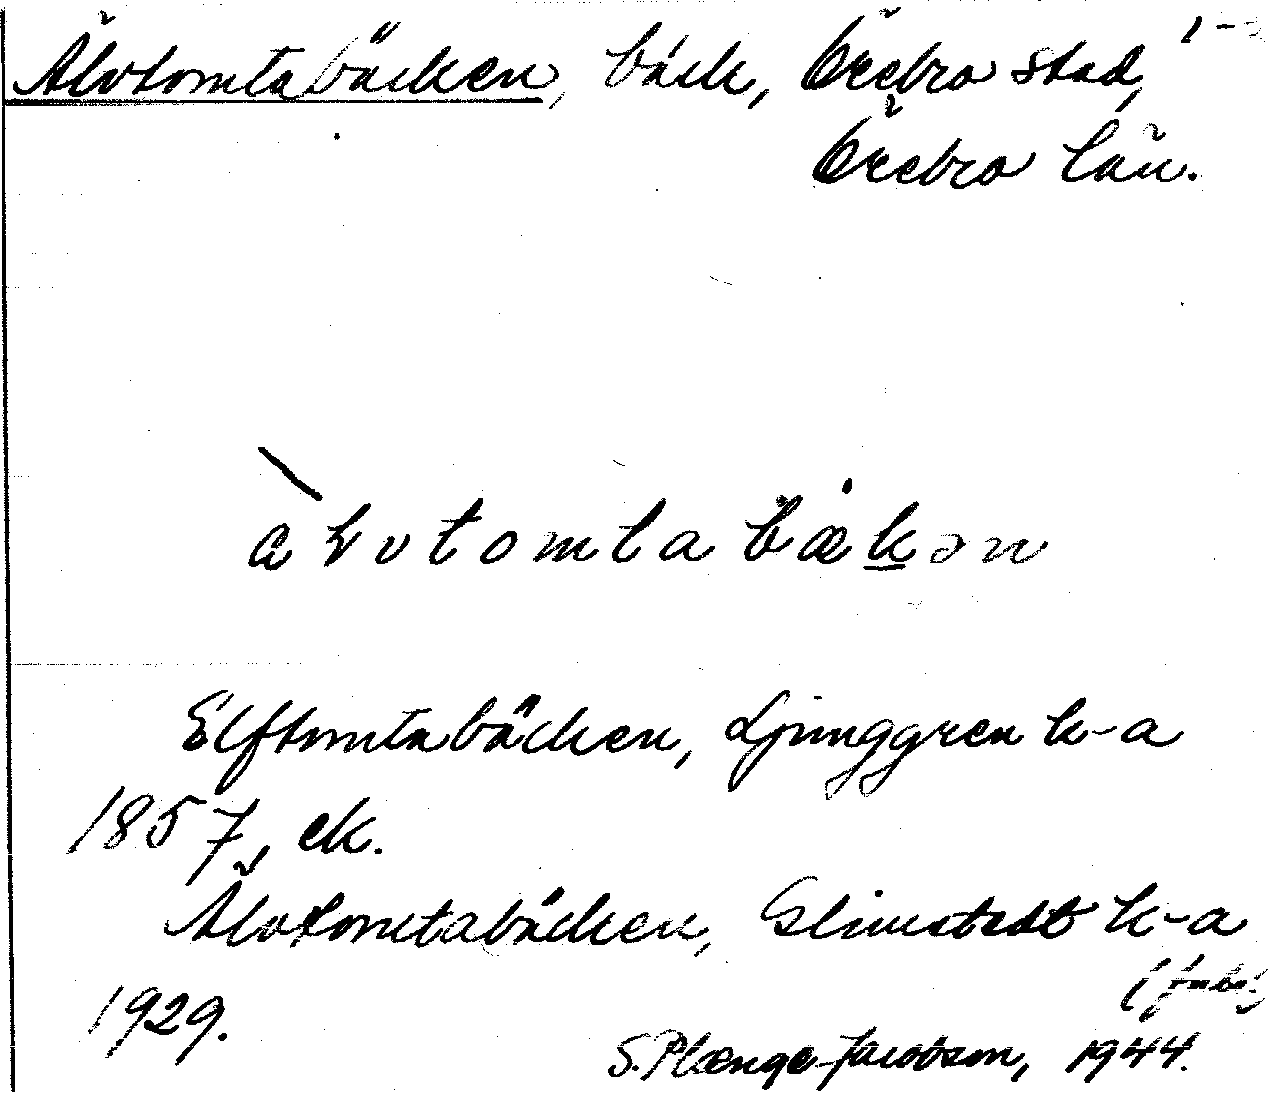 Älvtomtabäcken, bäck, Örebro stad,
Örebro län.
Elftomtabäcken, Ljunggren k-a
1857, ek.
Älvtomtabäcken, Glimstedt k-a
1929.
S. Plænge-Jacobson, 1944.